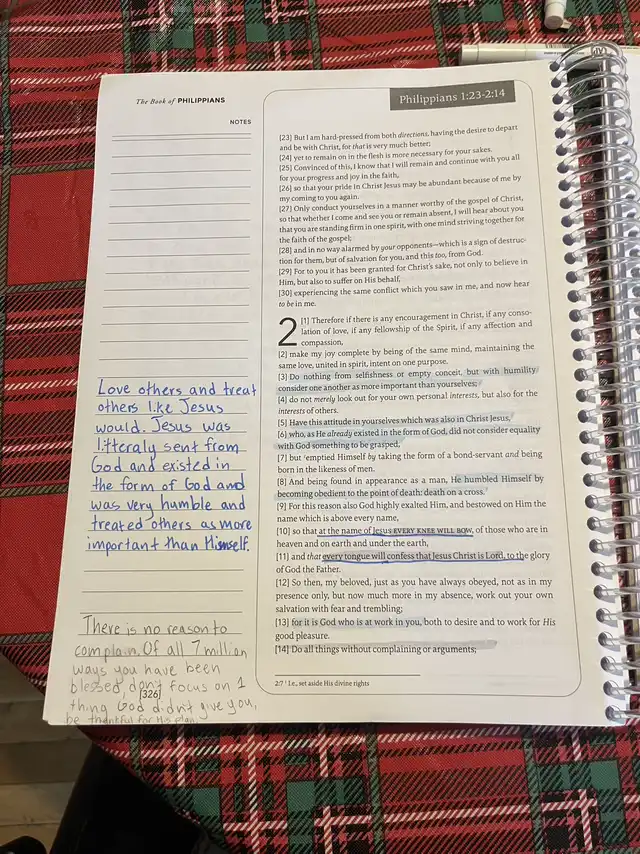 The Book of PHILIPPIANS
NOTES
Love others and treat
others like Jesus
would. Jesus was
litteraly sent from
God and existed in
the form of God and
was very humble and
treated others as more
important than Himself.
There is no reason to
complain. Of all 7 million
ways you have been
blessed, don't focus on 1
[326]
thing God didn't give you,
be thankful for His plan.
Philippians 1:23-2:14
[23] But I am hard-pressed from both directions, having the desire to depart
and be with Christ, for that is very much better;
[24] yet to remain on in the flesh is more necessary for your sakes.
[25] Convinced of this, I know that I will remain and continue with you all
for your progress and joy in the faith,
[26] so that your pride in Christ Jesus may be abundant because of me by
my coming to you again.
[27] Only conduct yourselves in a manner worthy of the gospel of Christ,
so that whether I come and see you or remain absent, I will hear about you
that you are standing firm in one spirit, with one mind striving together for
the faith of the gospel;
[28] and in no way alarmed by your opponents—which is a sign of destruc-
tion for them, but of salvation for you, and this too, from God.
[29] For to you it has been granted for Christ's sake, not only to believe in
Him, but also to suffer on His behalf,
[30] experiencing the same conflict which you saw in me, and now hear
to be in me.
2 [1] Therefore if there is any encouragement in Christ, if any conso-
lation of love, if any fellowship of the Spirit, if any affection and
compassion,
[2] make my joy complete by being of the same mind, maintaining the
same love, united in spirit, intent on one purpose.
[3] Do nothing from selfishness or empty conceit, but with humility
consider one another as more important than yourselves;
[4] do not merely look out for your own personal interests, but also for the
interests of others.
[5] Have this attitude in yourselves which was also in Christ Jesus,
[6] who, as He already existed in the form of God, did not consider equality
with God something to be grasped,
[7] but ¹emptied Himself by taking the form of a bond-servant and being
born in the likeness of men.
[8] And being found in appearance as a man, He humbled Himself by
becoming obedient to the point of death: death on a cross.
[9] For this reason also God highly exalted Him, and bestowed on Him the
name which is above every name,
[10] so that at the name of Jesus EVERY KNEE WILL BOW, of those who are in
heaven and on earth and under the earth,
[11] and that every tongue will confess that Jesus Christ is Lord, to the glory
of God the Father.
[12] So then, my beloved, just as you have always obeyed, not as in my
presence only, but now much more in my absence, work out your own
salvation with fear and trembling;
[13] for it is God who is at work in you, both to desire and to work for His
good pleasure.
[14] Do all things without complaining or arguments;
2:7 ¹ I.e., set aside His divine rights